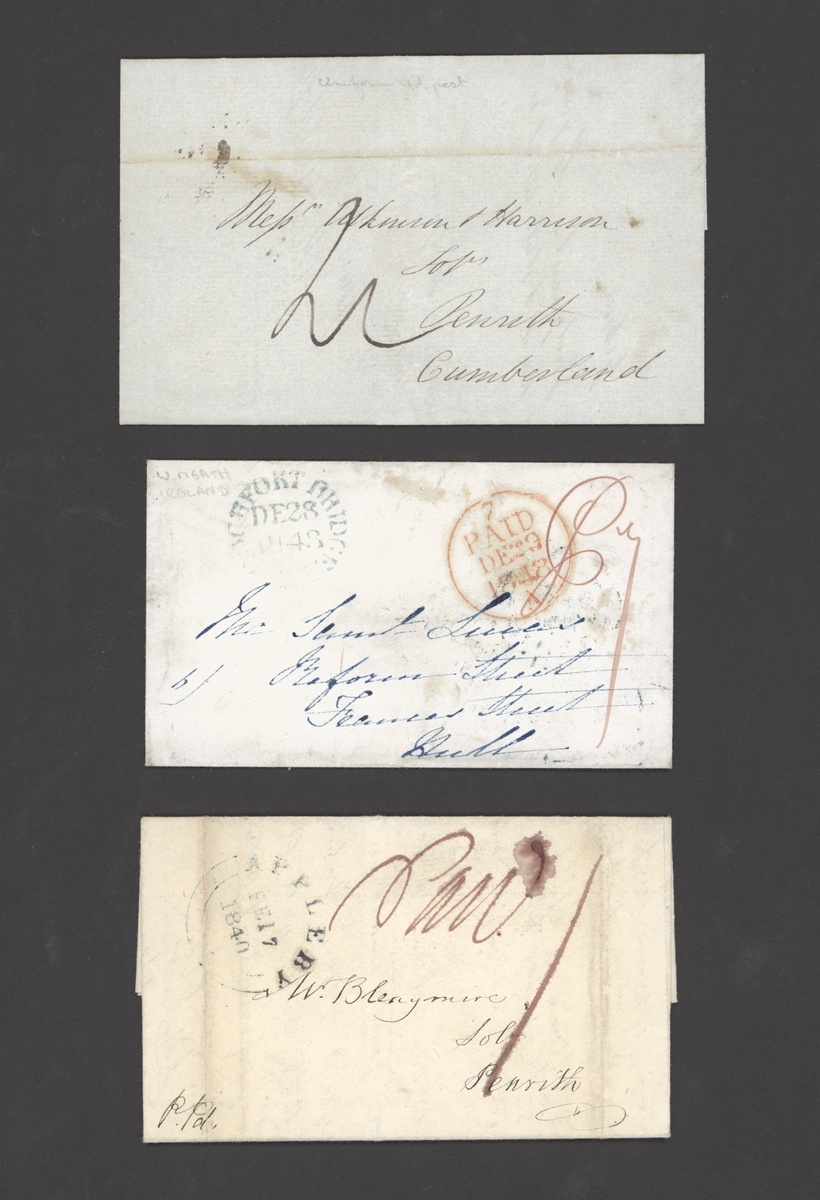 Uniform 4d post
Messrs Atkinson & Harrison
Solrs
Penrith
Cumberland
W. MEATH
IRELAND
ROCHFORT BRIDGE
DE 28
1843
PAID
DE 29
Pd
1
Mr Saml Lucas
Reform Street
Frances Street
Hull
APPLEBY
FE 17
1840
Paid
1
Wm Bleaymire
Solr
Penrith
P. Pd.